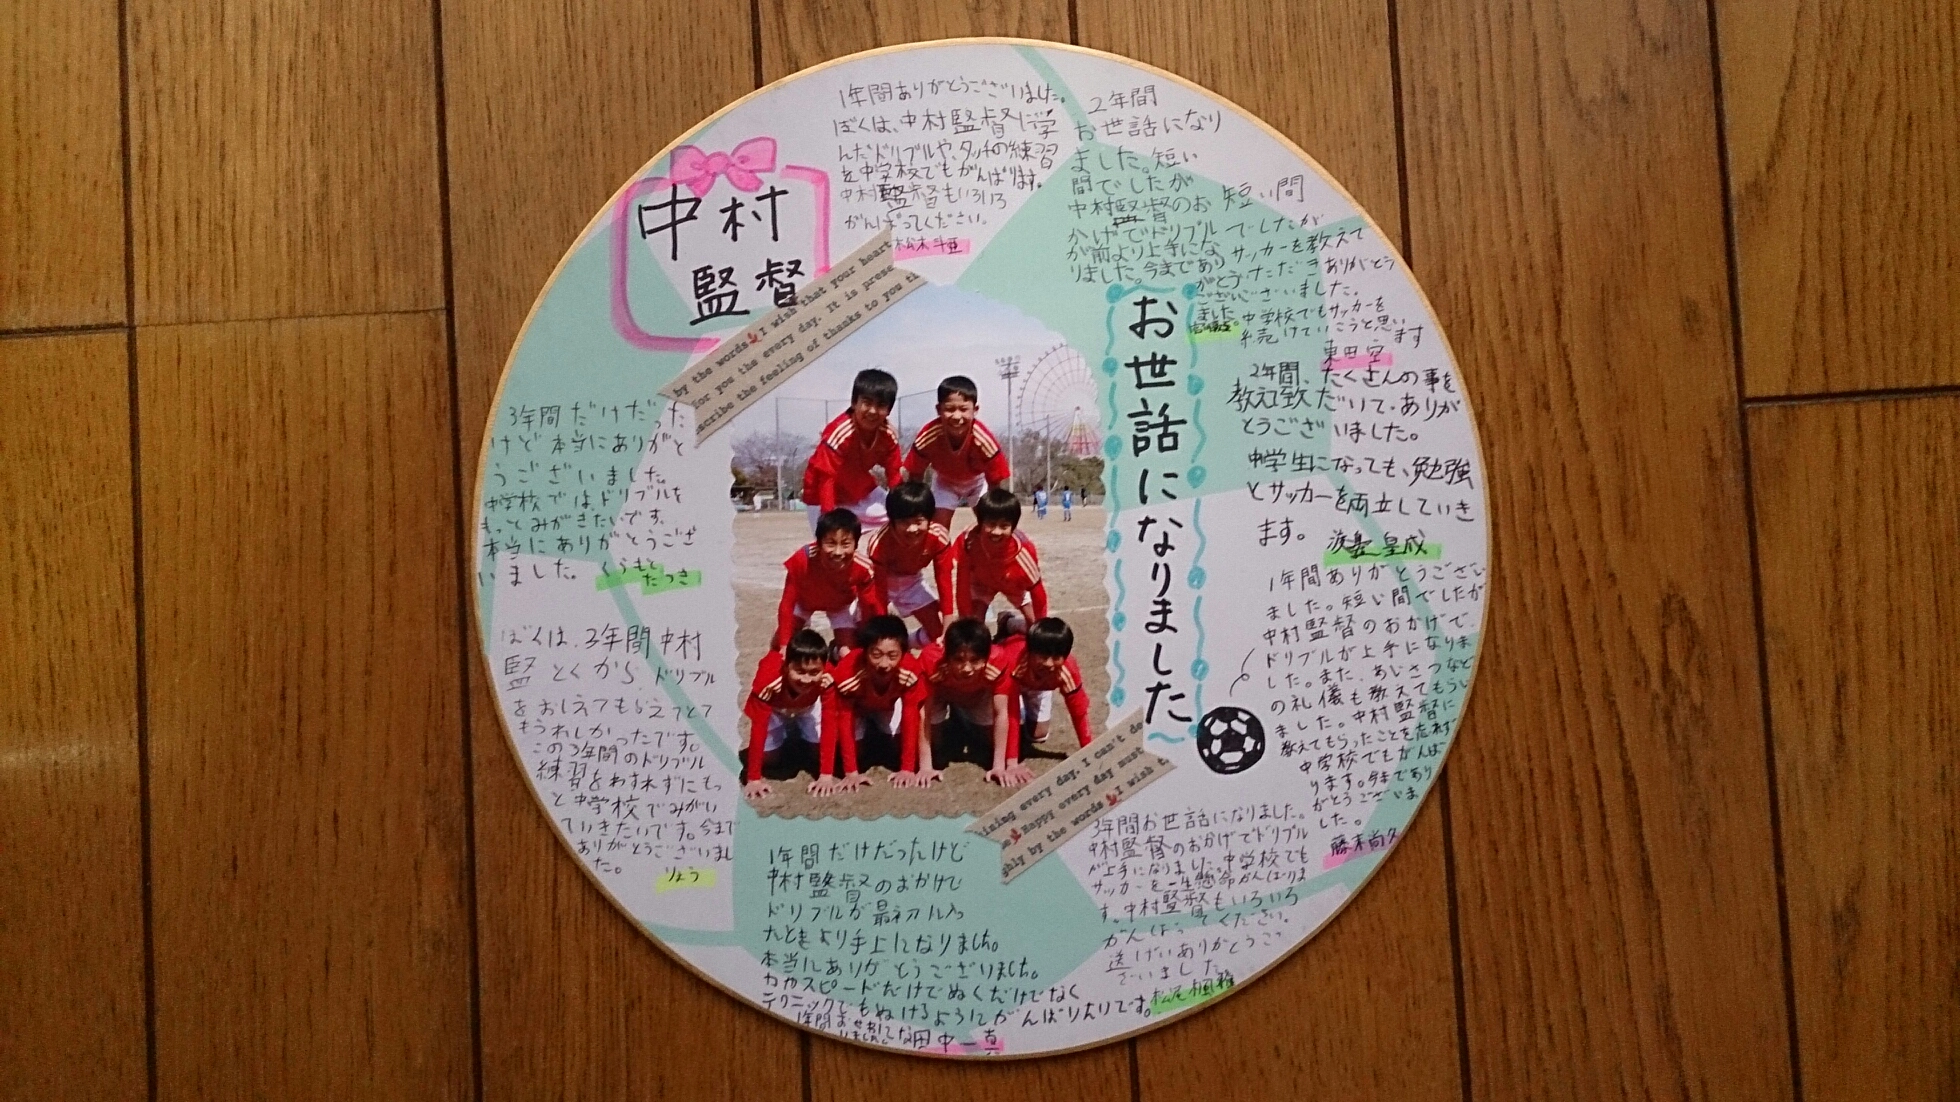 中村
監督
1年間ありがとうございました。
ぼくは、中村監督に学
んだドリブルや、タッチの練習
を中学校でもがんばります。
中村監督もいろいろ
がんばってください。
2年間
お世話になり
ました。短い
間でしたが
中村監督のお
かげでドリブル
が前より上手にな
りました。今まであり
がとう
ございました。
短い間
でしたが
サッカーを教えて
いただきありがとう
ございました。
中学校でもサッカーを
続けていこうと思います
東田空
2年間、たくさんの事を
教えて致だいて、ありが
とうございました。
中学生になっても、勉強
とサッカーを両立していき
ます。
皇成
1年間ありがとうござい
ました。短い間でしたが
中村監督のおかげで、
ドリブルが上手になりま
した。また、あいさつなど
の礼儀も教えてもらい
ました。中村監督に
教えてもらったことを忘れず
中学校でもがんば
ります。今まであり
がとうございま
した。
藤末尚久
3年間お世話になりました。
中村監督のおかげでドリブル
が上手になりました。中学校でも
サッカーを一生懸命がんばりま
す。中村監督もいろいろ
がんばってください。
送げいありがとうご
ざいました
松尾楓雅
1年間だけだったけど
中村監督のおかげで
ドリブルが最初入っ
たときより手上になりました。
本当にありがとうございました。
力やスピードだけでぬくだけでなく
テクニックでもぬけるようにがんばりたりです。
1年間お世話に
なりました
田中一真
ぼくは、3年間中村
監とくから ドリブル
をおしえてもらえてとて
もうれしかったです。
この3年間のドリブル
練習をわすれずにもっ
と中学校でみがい
ていきたいです。今まで
ありがとうございまし
た。
りょう
3年間だけだった
けど本当にありがと
うございました。
中学校では、ドリブルを
もっとみがきたいです。
本当にありがとうござ
いました。
くらもと
たつき
お世話になりました
by the words I wish that your heart
for you the every day. It is prese
scribe the feeling of thanks to you th
ining every day. I can't de
Happy every day must
ghly by the words I wish t